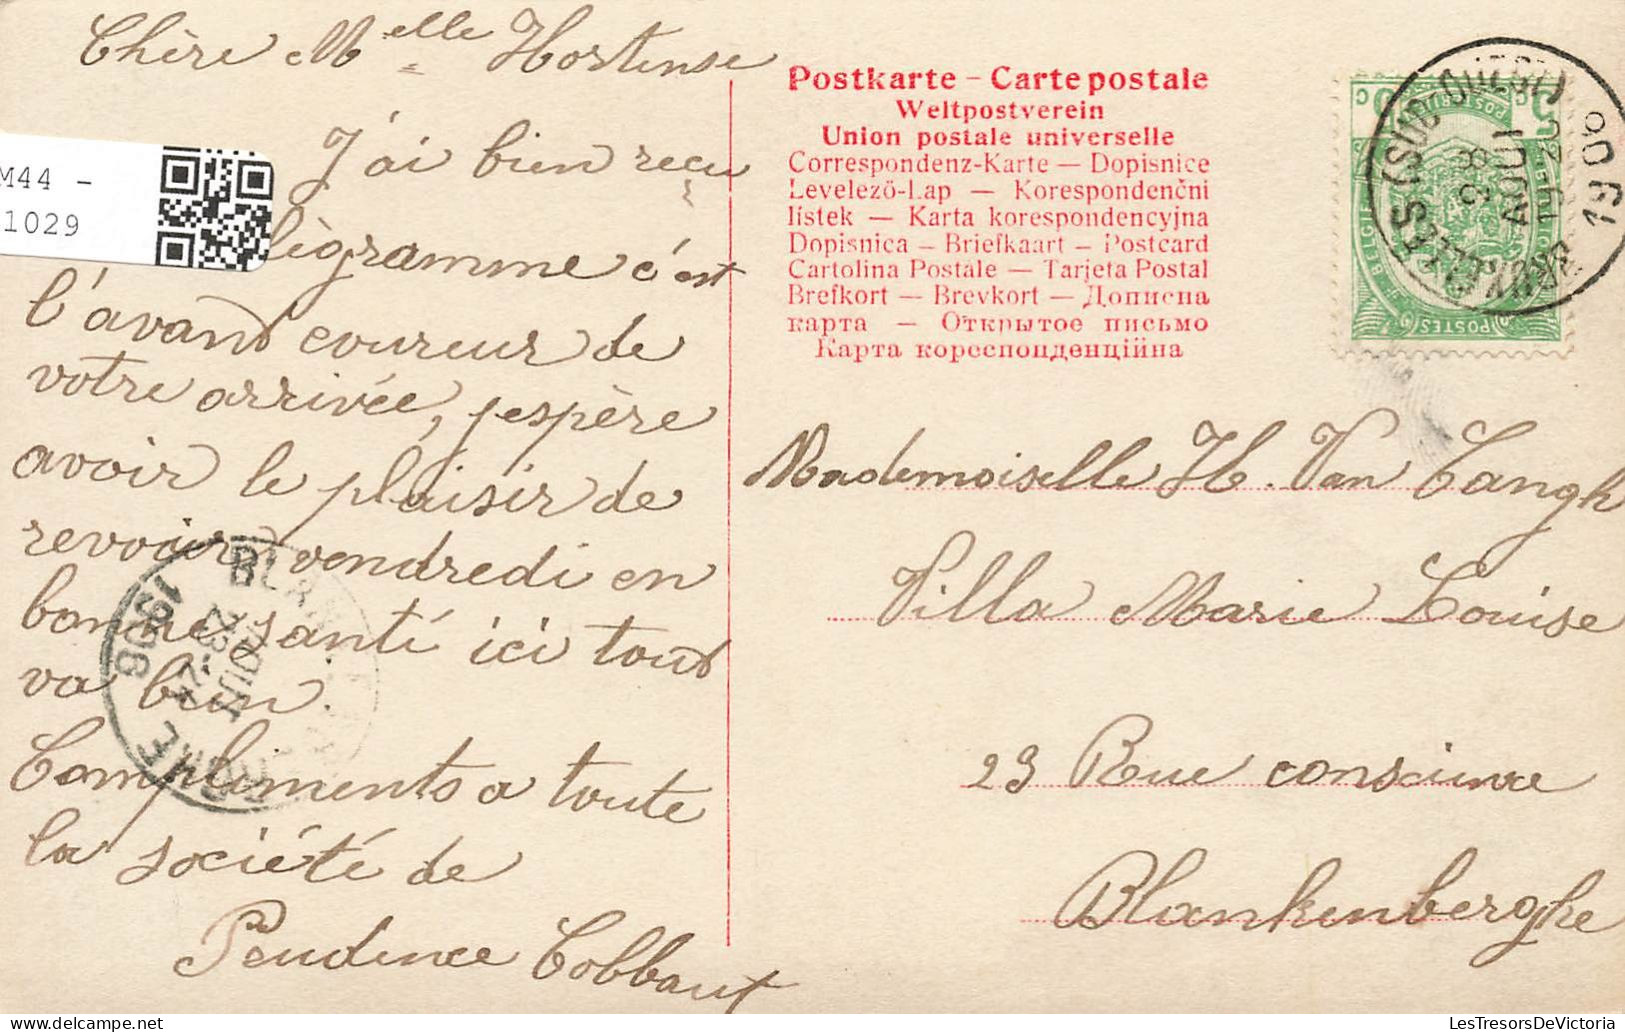 Chère Melle Hortense
J'ai bien reçu
légramme c'est
l'avant coureur de
votre arrivée, j'espère
avoir le plaisir de
revoir vendredi en
bonne santé ici tout
va bien.
Compliments a toute
la société de
Prudence Cobbaut
M44 -
1029
BLANKENBERGHE
1906
Postkarte – Carte postale
Weltpostverein
Union postale universelle
Correspondenz-Karte — Dopisnice
Levelező-Lap — Korespondenční
listek — Karta korespondencyjna
Dopisnica – Briefkaart – Postcard
Cartolina Postale – Tarjeta Postal
Brefkort — Brevkort — Дописна
карта — Открытое письмо
Карта кореспонденційна
BRUXELLES (SUD-OUEST)
AOUT
1906
BELGIE
POSTES
Mademoiselle H. Van Cangh
Villa Marie Louise
23 Rue conscience
Blankenberghe
LesTresorsDeVictoria